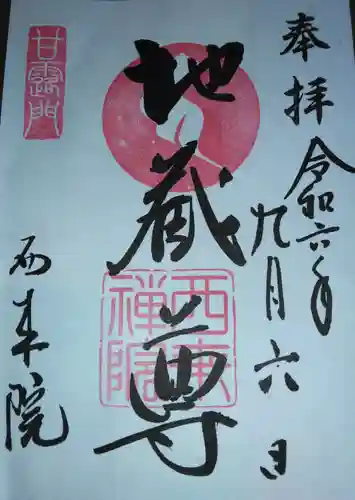 奉拝
令和六年
九月六日
地蔵尊
甘露門
西来禅院
西来院